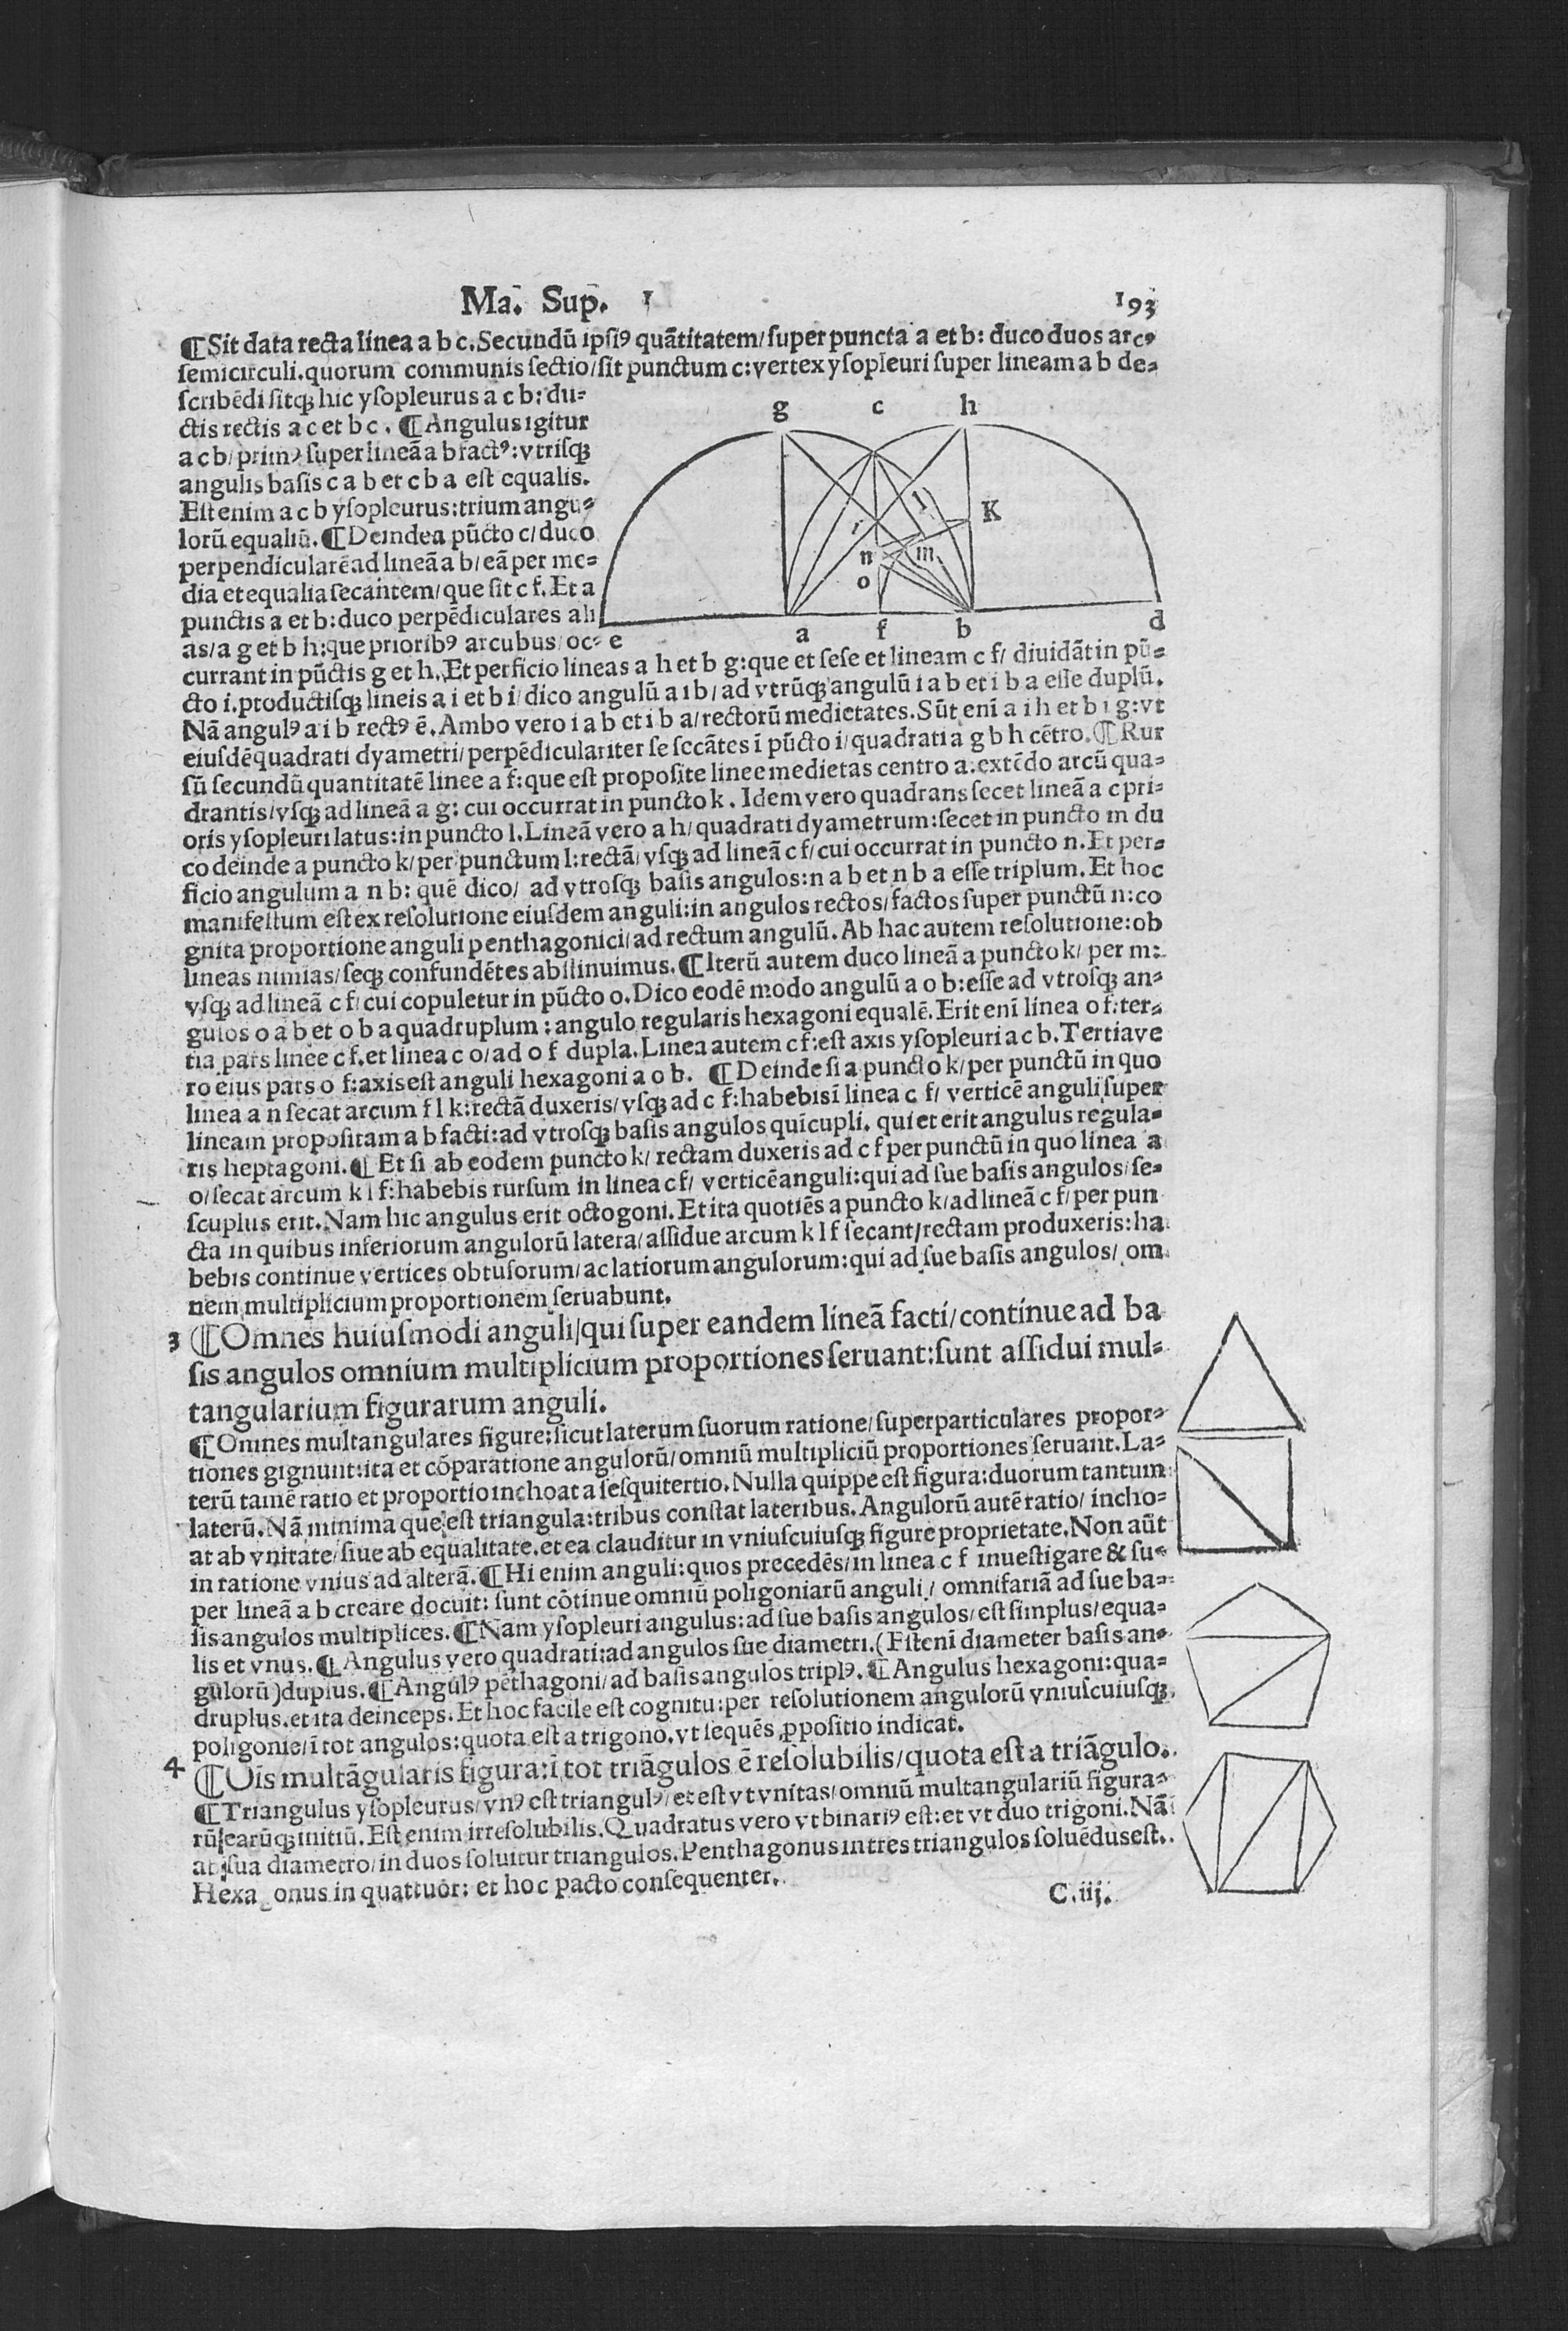 Ma. Sup. 1 193
¶Sit data recta linea a b c. Secundũ ipsiꝰ quãtitatem/ super puncta a et b: duco duos arcꝰ
semicirculi. quorum communis sectio/ sit punctum c: vertex ysopleuri super lineam a b de⸗
scribẽdi sitqꝫ hic ysopleurus a c b: du⸗
ctis rectis a c et b c. ¶Angulus igitur
a c b/ primꝰ super lineã a b factꝰ: vtrisqꝫ
angulis basis c a b et c b a est equalis.
Est enim a c b ysopleurus: trium angu⸗
lorũ equaliũ. ¶Deinde a pũcto c/ duco
perpendicularẽ ad lineã a b/ eã per me⸗
dia et equalia secantem/ que sit c f. Et a
punctis a et b: duco perpẽdiculares ali
as/ a g et b h: que prioribꝰ arcubus/ oc⸗
g c h
K
l
i
n m
o
e a f b d
currant in pũctis g et h. Et perficio lineas a h et b g: que et sese et lineam c f/ diuidãt in pũ⸗
cto i. productisqꝫ lineis a i et b i/ dico angulũ a i b/ ad vtrũqꝫ angulũ i a b et i b a esse duplũ.
Nã angulꝰ a i b rectꝰ ẽ. Ambo vero i a b et i b a/ rectorũ medietates. Sũt eni a i h et b i g: vt
eiusdẽ quadrati dyametri/ perpẽdiculariter se secãtes ĩ pũcto i/ quadrati a g b h cẽtro. ¶Rur
sũ secundũ quantitatẽ linee a f: que est proposite linee medietas centro a. extẽdo arcũ qua⸗
drantis/ vsqꝫ ad lineã a g: cui occurrat in puncto k. Idem vero quadrans secet lineã a c pri⸗
oris ysopleuri latus: in puncto l. Lineã vero a h/ quadrati dyametrum: secet in puncto m du
co deinde a puncto k/ per punctum l: rectã/ vsqꝫ ad lineã c f/ cui occurrat in puncto n. Et per⸗
ficio angulum a n b: quẽ dico/ ad vtrosqꝫ basis angulos: n a b et n b a esse triplum. Et hoc
manifestum est ex resolutione eiusdem anguli: in angulos rectos/ factos super punctũ n: co
gnita proportione anguli penthagonici/ ad rectum angulũ. Ab hac autem resolutione: ob
lineas nimias/ seqꝫ confundẽtes abstinuimus. ¶Iterũ autem duco lineã a puncto k/ per m:
vsqꝫ ad lineã c f/ cui copuletur in pũcto o. Dico eodẽ modo angulũ a o b: esse ad vtrosqꝫ an⸗
gulos o a b et o b a quadruplum: angulo regularis hexagoni equalẽ. Erit enĩ linea o f: ter⸗
tia pars linee c f. et linea c o/ ad o f dupla. Linea autem c f: est axis ysopleuri a c b. Tertia ve
ro eius pars o f: axis est anguli hexagoni a o b. ¶Deinde si a puncto k/ per punctũ in quo
linea a n secat arcum f l k: rectã duxeris/ vsqꝫ ad c f: habebis ĩ linea c f/ verticẽ anguli super
lineam propositam a b facti: ad vtrosqꝫ basis angulos quĩcupli. qui et erit angulus regula⸗
ris heptagoni. ¶Et si ab eodem puncto k/ rectam duxeris ad c f per punctũ in quo linea a
o/ secat arcum k l f: habebis rursum in linea c f/ verticẽ anguli: qui ad sue basis angulos/ se⸗
scuplus erit. Nam hic angulus erit octogoni. Et ita quotiẽs a puncto k/ ad lineã c f/ per pun
cta in quibus inferiorum angulorũ latera/ assidue arcum k l f secant/ rectam produxeris: ha
bebis continue vertices obtusorum/ ac latiorum angulorum: qui ad sue basis angulos/ om
nem multiplicium proportionem seruabunt.
3 ¶Omnes huiusmodi anguli/ qui super eandem lineã facti/ continue ad ba
sis angulos omnium multiplicium proportiones seruant: sunt assidui mul⸗
tangularium figurarum anguli.
¶Omnes multangulares figure: sicut laterum suorum ratione/ superparticulares propor⸗
tiones gignunt: ita et cõparatione angulorũ/ omniũ multipliciũ proportiones seruant. La⸗
terũ tamẽ ratio et proportio inchoat a sesquitertio. Nulla quippe est figura: duorum tantum
laterũ. Nã minima que est triangula: tribus constat lateribus. Angulorũ autẽ ratio/ incho⸗
at ab vnitate/ siue ab equalitate. et ea clauditur in vniuscuiusqꝫ figure proprietate. Non aũt
in ratione vnius ad alterã. ¶Hi enim anguli: quos precedẽs/ in linea c f inuestigare & su⸗
per lineã a b creare docuit: sunt cõtinue omniũ poligoniarũ anguli/ omnifariã ad sue ba⸗
sis angulos multiplices. ¶Nam ysopleuri angulus: ad sue basis angulos/ est simplus/ equa⸗
lis et vnus. ¶Angulus vero quadrati: ad angulos sue diametri. (Est enĩ diameter basis an⸗
gulorũ) duplus. ¶Angulꝰ pẽthagoni/ ad basis angulos triplꝰ. ¶Angulus hexagoni: qua⸗
druplus. et ita deinceps. Et hoc facile est cognitu: per resolutionem angulorũ vniuscuiusqꝫ
poligonie/ ĩ tot angulos: quota est a trigono. vt sequẽs ꝓpositio indicat.
4 ¶Oĩs multãgularis figura: ĩ tot triãgulos ẽ resolubilis/ quota est a triãgulo.
¶Triangulus ysopleurus/ vnꝰ est triangulꝰ/ et est vt vnitas/ omniũ multangulariũ figura⸗
rũ/ earũqꝫ initiũ. Est enim irresolubilis. Quadratus vero vt binariꝰ est: et vt duo trigoni. Nã
a sua diametro/ in duos soluitur triangulos. Penthagonus in tres triangulos soluẽdus est.
Hexa onus in quattuor: et hoc pacto consequenter.
C.iij.